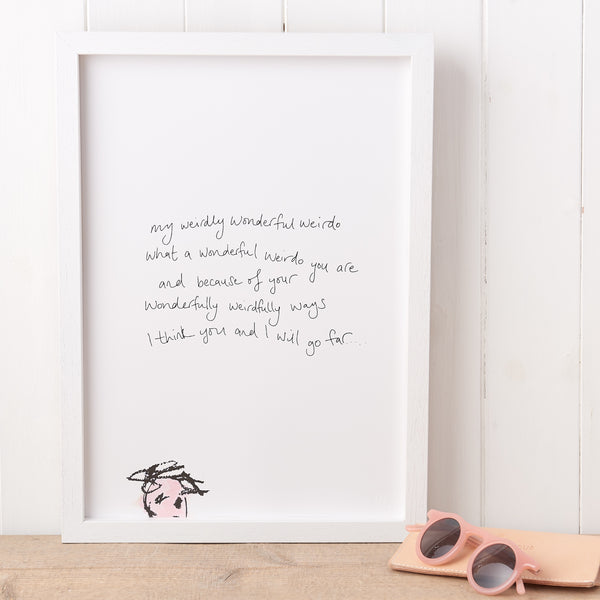 my weirdly wonderful weirdo
what a wonderful weirdo you are
and because of your
wonderfully weirdfully ways
I think you and I will go far....